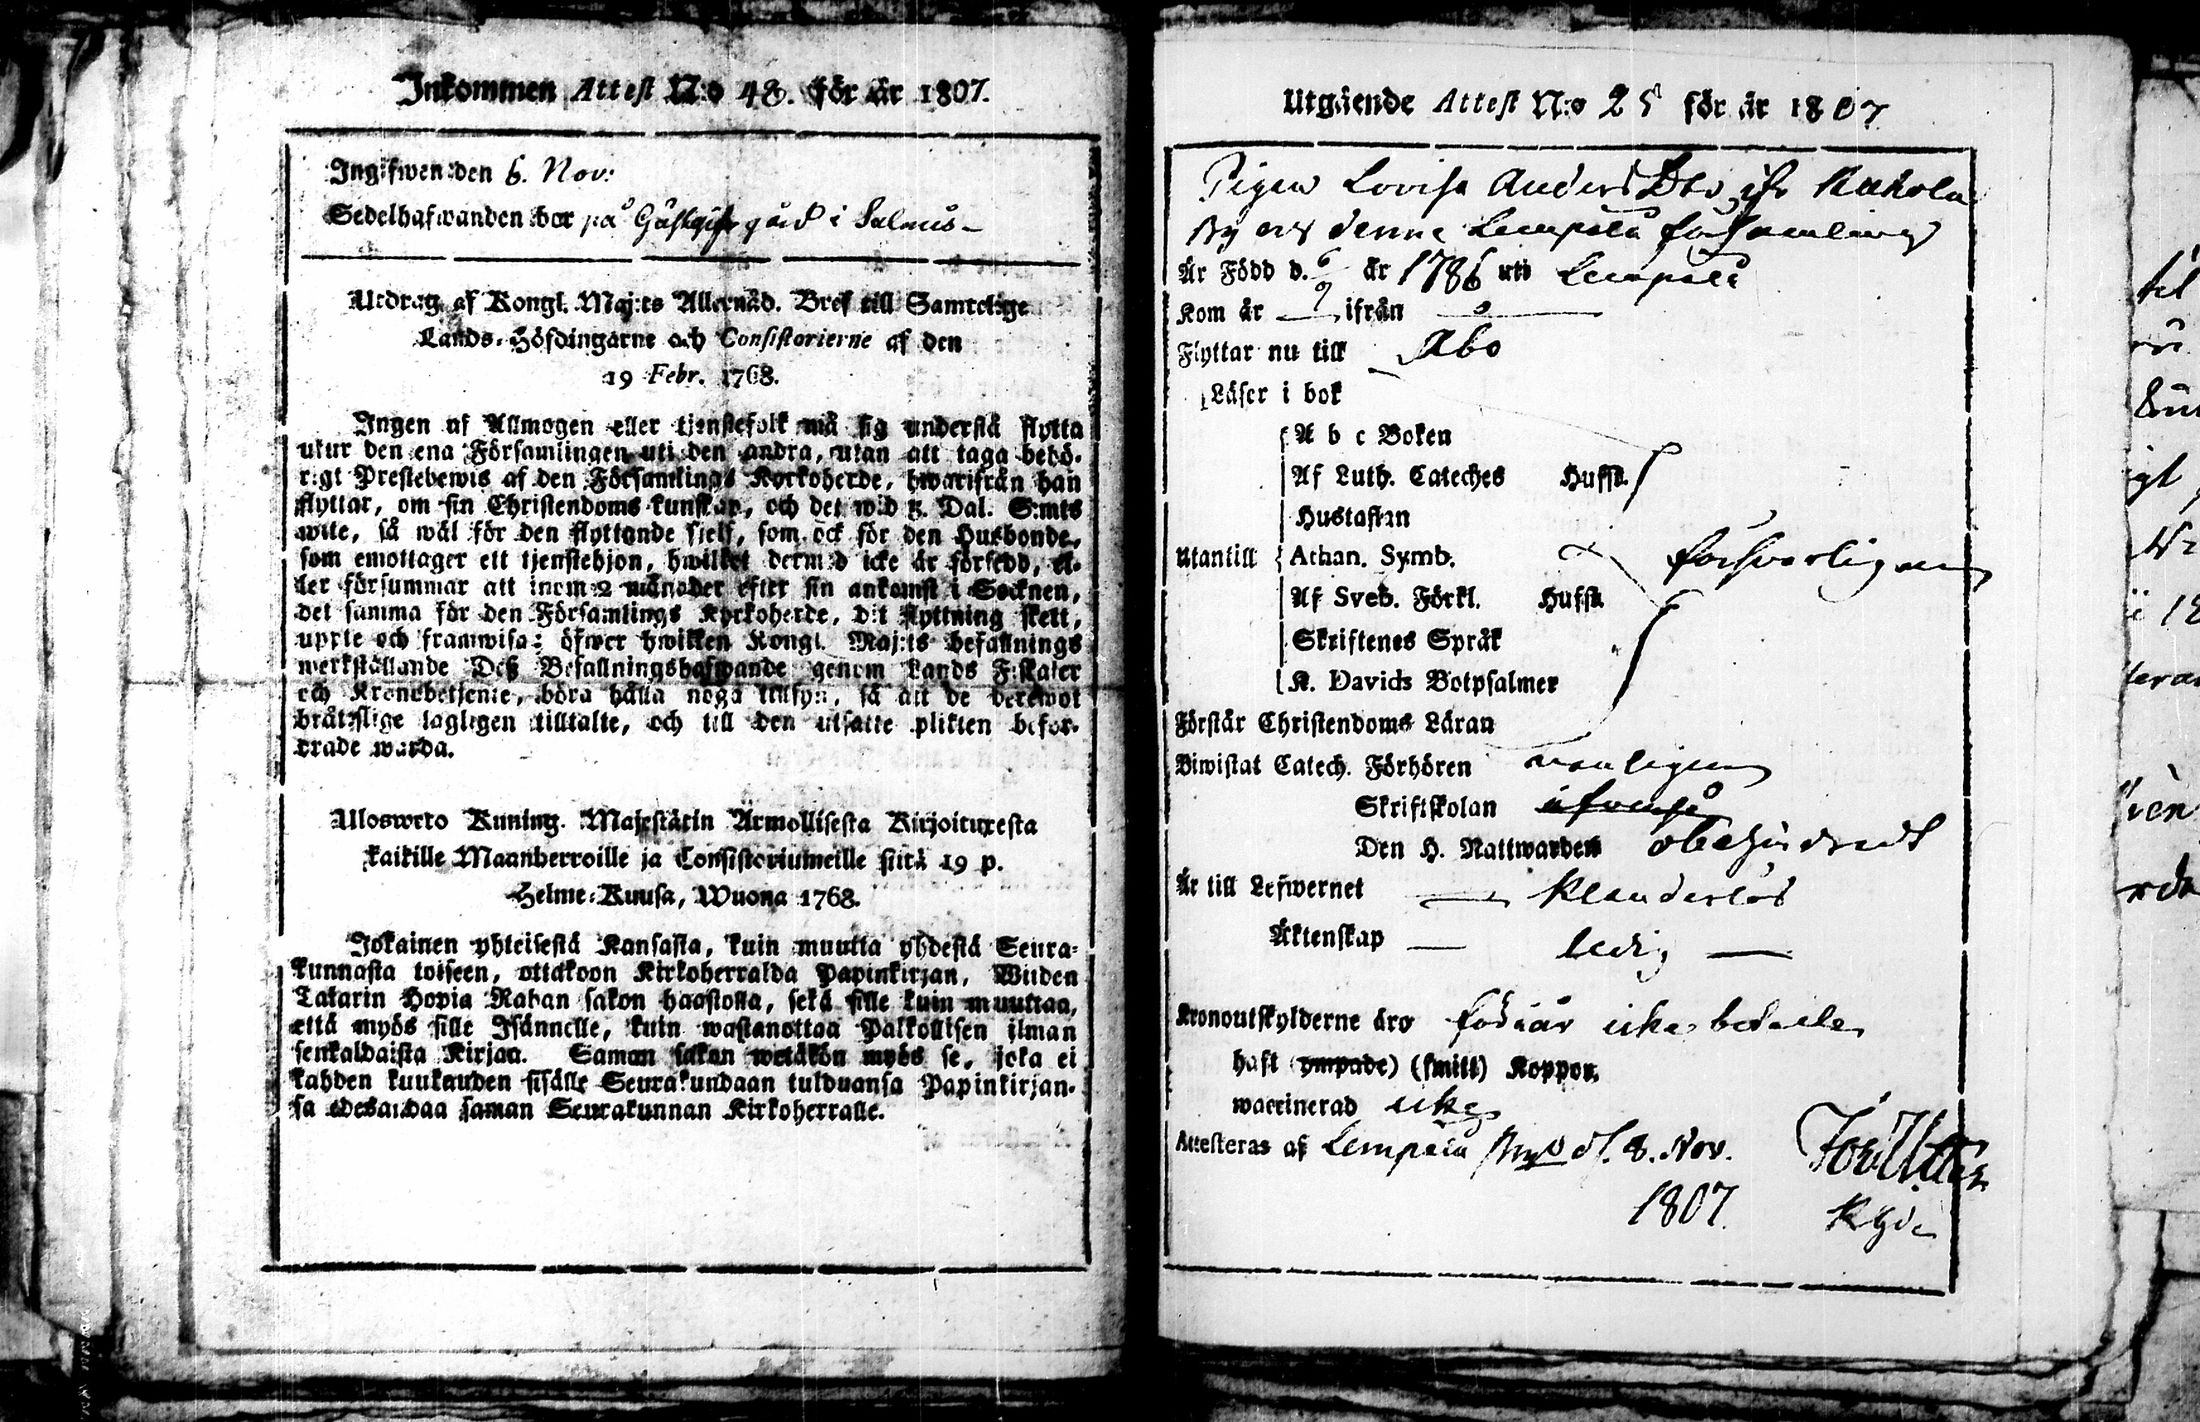 Inkommen Attest N:o 48. för år 1807.
Ingifwen den 6. Nov:
Sedelhafwanden bor på Gästgifvargård i Salmis
Utdrag af Kongl. Maj:ts Allernåd. Bref till Samtelige
Lands-Höfdingarne och Consistorierne af den
19 Febr. 1768.
Ingen af Allmogen eller tjenstefolk må sig understå flytta
utur den ena Församlingen uti den andra, utan att taga behö-
rigt Prestebewis af den Församlings Kyrkoherde, hwarifrån han
flyttar, om sin Christendoms kunskap, och det wid Dal. S:mts
wite, så wäl för den flyttande sjelf, som ock för den Husbonde,
som emottager ett tjenstehjon, hwilket dermed icke är försedd, el-
ler försummar att inom 2 månader efter sin ankomst i Socknen,
det samma för den Församlings Kyrkoherde, dit flyttning skett,
uppte och framwisa: öfwer hwilken Kongl. Maj:ts befallnings
werkställande Deß Befallningshafwande genom Lands Fiskaler
och Kronobetjente, böra hålla noga tillsyn, så att de derewot
bråtzlige lagligen tilltalte, och till den utsatte plikten befor-
drade warda.
Ulosweto Kuning. Majestätin Armollisesta Kirjoituxesta
kaikille Maanherroille ja Consistoriumeille siitä 19 p.
Helme-Kuusa, Wuona 1768.
Jokainen yhteisestä Kansasta, kuin muutta yhdestä Seura-
kunnasta toiseen, ottakoon Kirkoherralda Papinkirjan, Wiiden
Talarin Hopia Rahan sakon haastolla, sekä sille kuin muuttaa,
että myös sille Isännelle, kuin wastanottaa Palkollisen ilman
senkaldaista Kirjaa. Saman sakon wetäkön myös se, joka ei
kahden kuukauden sisälle Seurakundaan tulduansa Papinkirjan-
sa edesandaa saman Seurakunnan Kirkoherralle.
Utgående Attest N:o 25 för år 1807
Pigan Lovisa Anders Dotr ifr
By och denne Lempälä församling
Är Född d. 6/9 år 1786 uti Lempälä
Kom år ifrån
Flyttar nu till Åbo
Läser i bok
A b c Boken
Af Luth. Cateches Hufst.
Hustaflan
Utantill Athan. Symb. försvarligen
Af Sveb. Förkl. Hufst.
Skriftenes Språk
K. Davids Botpsalmer
Förstår Christendoms Läran
Biwistat Catech. Förhören vanligen
Skriftskolan äfwenså
Den H. Nattwarden obehindradt
Är till Lefwernet klanderlös
Äktenskap ledig
Kronoutskylderne äro för i år icke betalte
haft (ympade) (smitt) Koppor,
waccinerad icke
Attesteras af Lempälä d. 8. Nov.
1807.